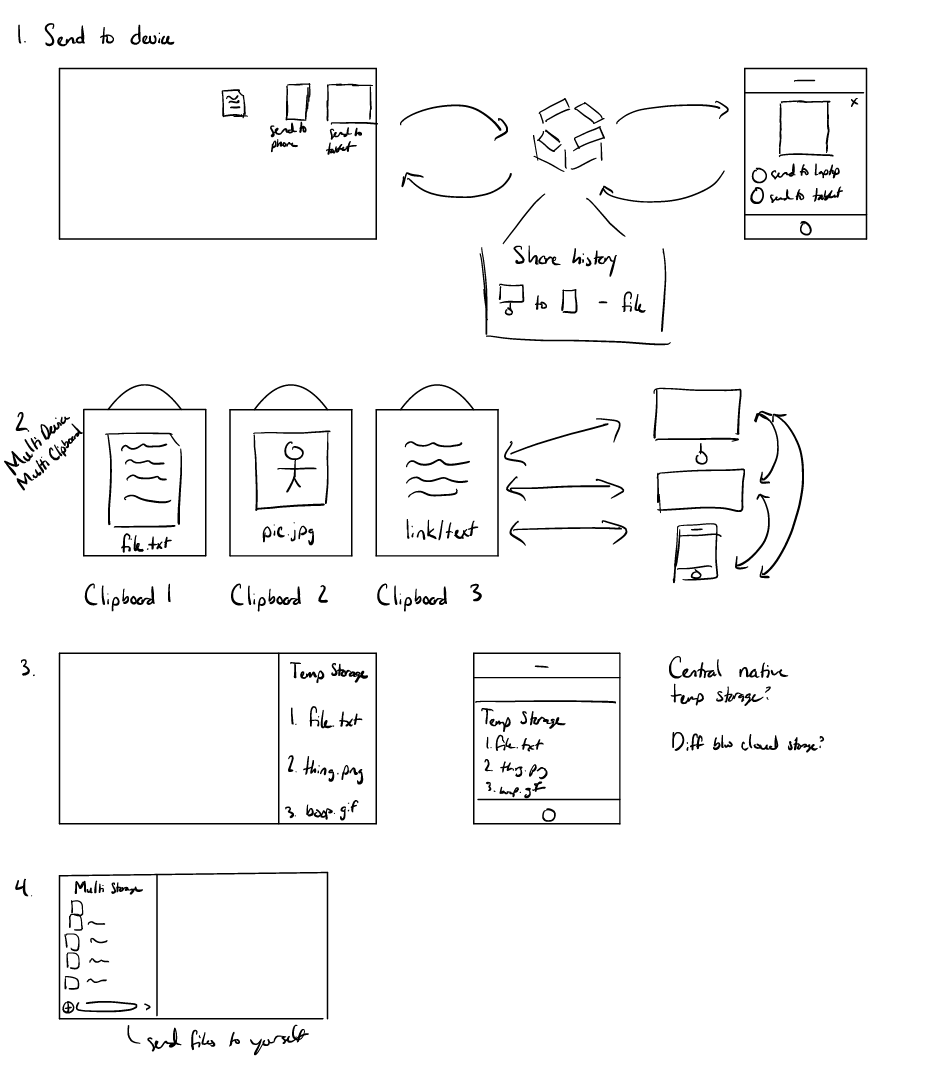 1. Send to device
send to
phone
send to
tablet
x
send to laptop
send to tablet
Share history
to - file
2.
Multi Device
Multi Clipboard
file.txt
pic.jpg
link/text
Clipboard 1
Clipboard 2
Clipboard 3
3.
Temp Storage
1. file.txt
2. thing.png
3. boop.gif
Temp Storage
1. file.txt
2. thing.png
3. boop.gif
Central native
temp storage?
Diff btw cloud storage?
4.
Multi Storage
send files to yourself